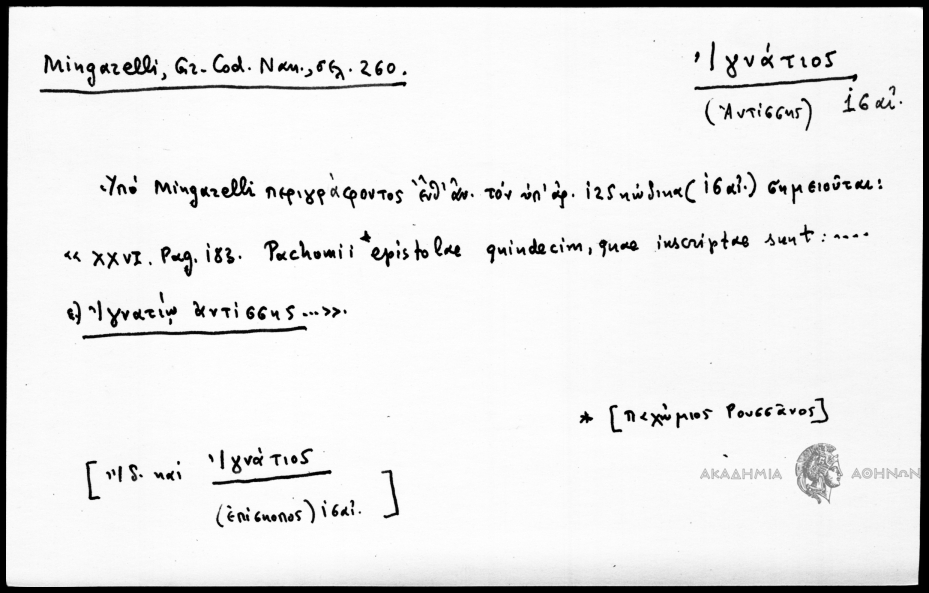 Mingarelli, Gr. Cod. Nan., σελ. 260.
Ἰγνάτιος
(Ἀντίσσης) 16 αἰ.
Ὑπό Mingarelli περιγράφοντος ἔνθ' ἄν. τόν ὑπ' ἀρ. 125 κώδικα (16 αἰ.) σημειοῦται:
« XXVI. Pag. 183. Pachomii * epistolae quindecim, quae inscriptae sunt: ....
ε) Ἰγνατίῳ Ἀντίσσης ...».
* [Παχώμιος Ρουσσᾶνος]
[Ἰδ. καί Ἰγνάτιος
(ἐπίσκοπος) 16 αἰ.]
ΑΚΑΔΗΜΙΑ ΑΘΗΝΩΝ